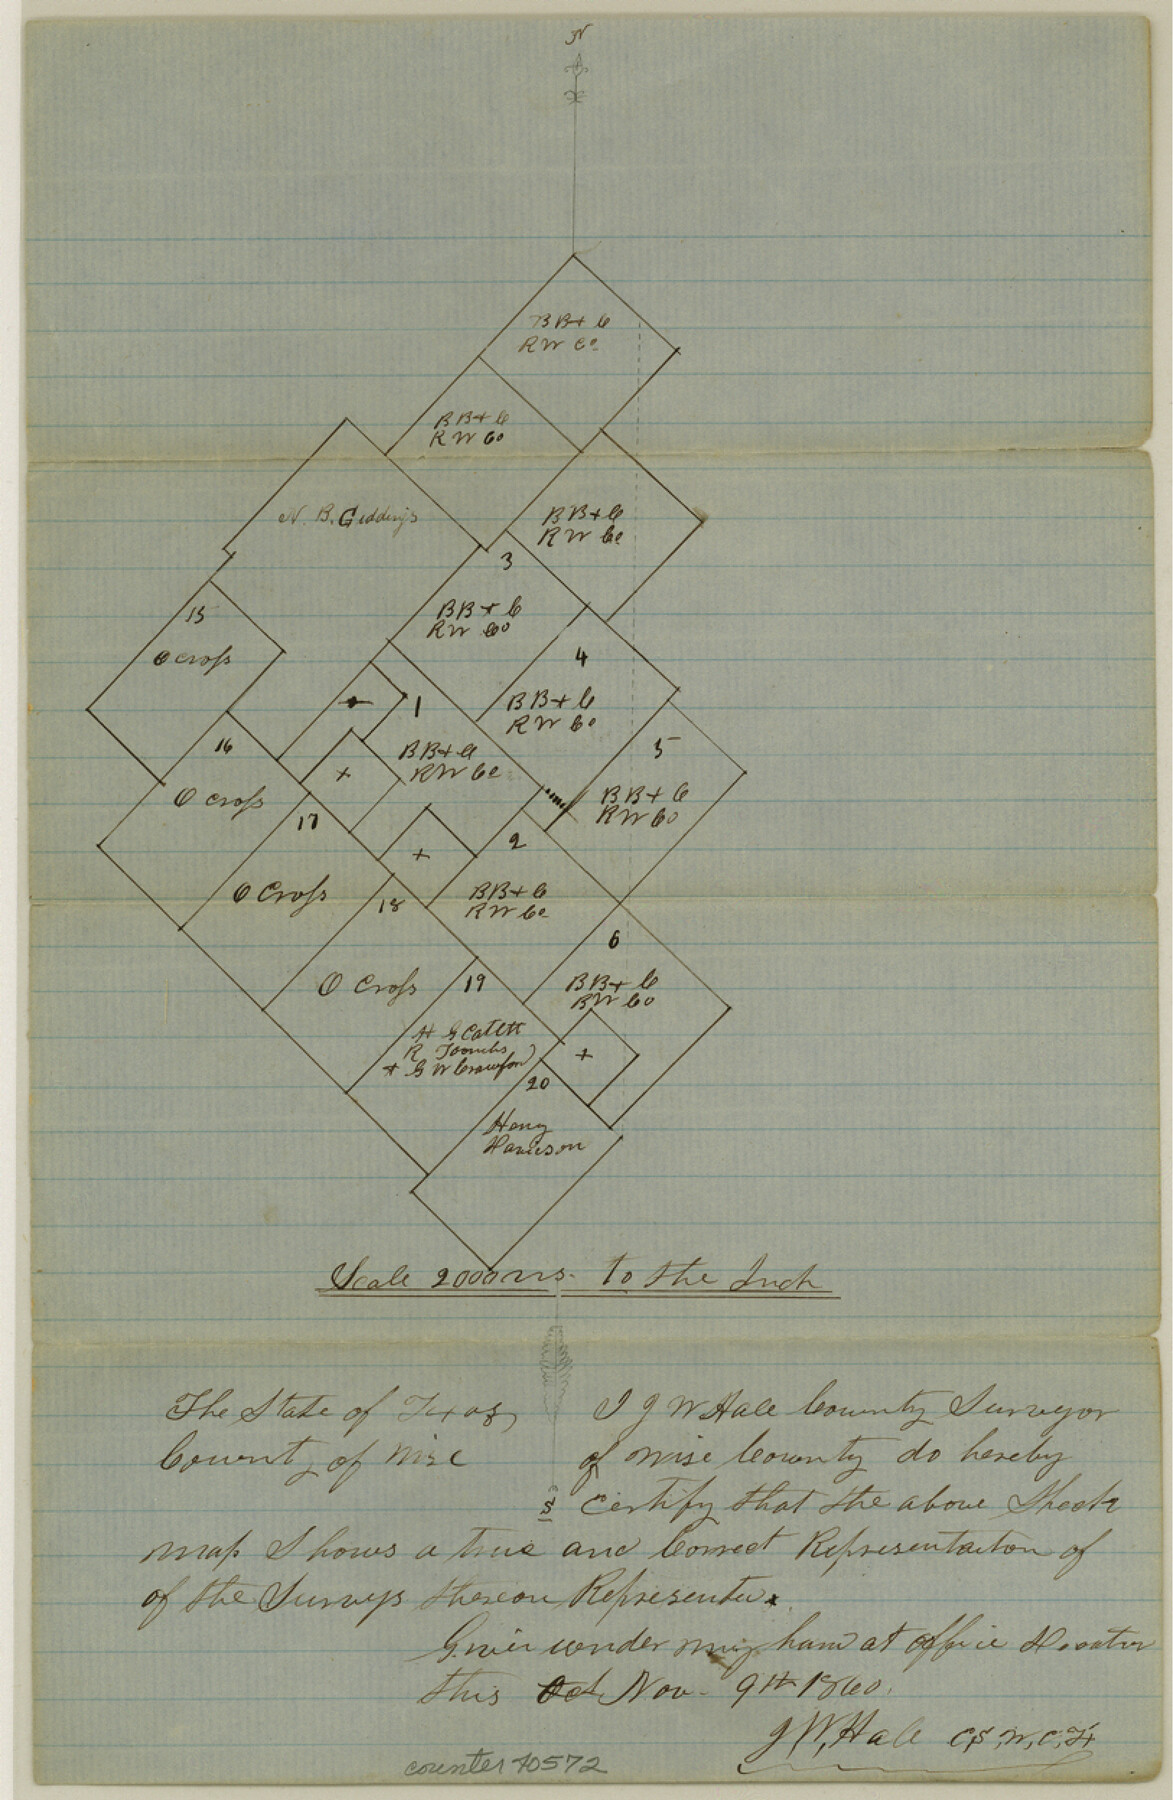 N
BB+C
RW Co
BB+C
RW Co
N. B. Giddings
BB+C
RW Co
3
BB+C
RW Co
15
O Cross
4
BB+C
RW Co
1
BB+C
RW Co
+
16
O Cross
+
5
BB+C
RW Co
17
O Cross
+
2
BB+C
RW Co
18
O Cross
6
BB+C
RW Co
+
19
H G Catlett
R Toombs
+ G W Crawford
20
Henry
Harrison
Scale 2000 vrs. to the Inch
The State of Texas,
County of Wise
I J W Hale County Surveyor
of Wise County do hereby
S certify that the above Sketch
map Shows a true and Correct Representation of
of the Surveys thereon Represented.
Given under my hand at office Decatur
this Oct Nov. 9th 1860.
J W, Hale C,S,W,C,Tx
counter 40572